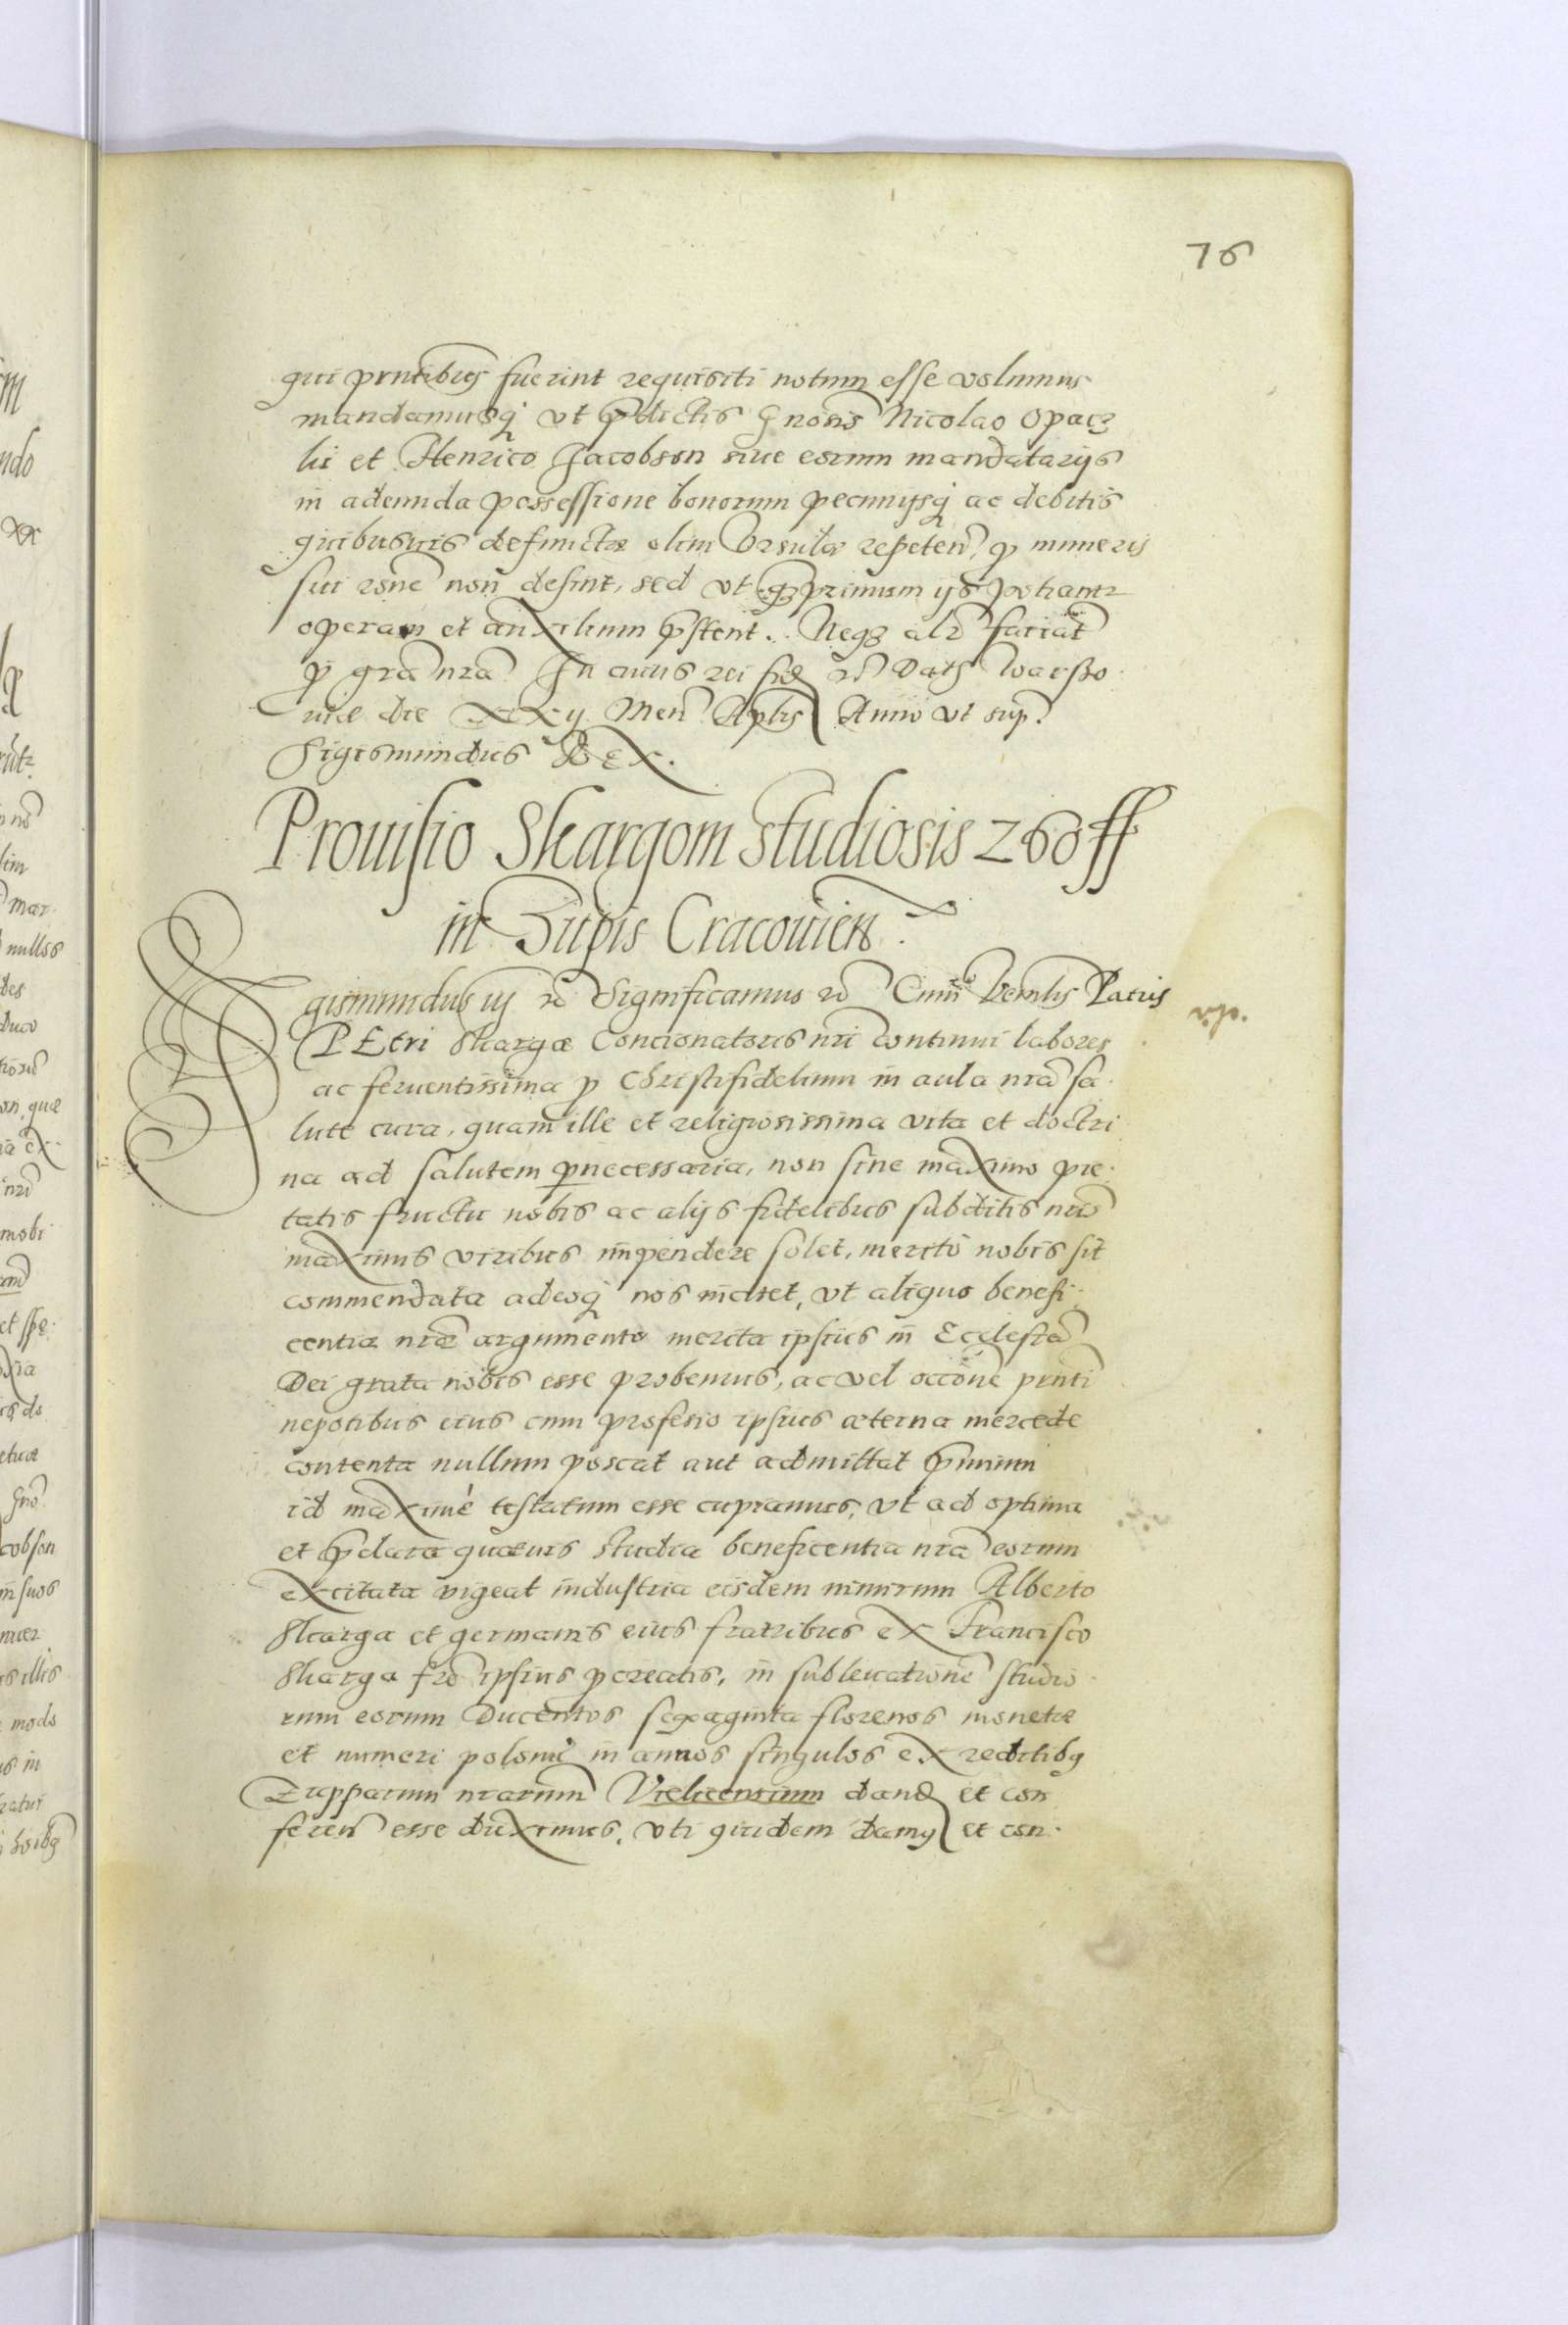 76
qui pntibus fuerint requisiti notum esse volumus
mandamusq ut pdictis Gnosis Nicolao Opacz
ki et Henrico Jacobson siue eorum mandatarijs
in adeunda possessione bonorum pecunijsq ac debitis
quibusuis defunctæ olim Vrsulæ repeten, p muneris
sui rone non desint, sed ut qprimum ijs potiantr
operam et auxilium pstent. Neqz alr faciat
p gra nra. In cuius rei fid rc Dats Warsso
uiæ die XXij Men Aplis Anno ut sup.
Sigismundus Rex.
Prouisio Skargom studiosis 260 ff
in Zupis Cracouien.
Sigismundus iij rc Significamus rc Cum Venlis Patris
PEtri Skargæ Concionatoris nri continui labores
ac feruentissima p Christifidelium in aula nra sa
lute cura, quam ille et religiosissima vita et doctri
na ad salutem pnecessaria, non sine maximo pie
tatis fructu nobis ac alijs fidelibus subditis nris
maximis viribus impendere solet, merito nobis sit
commendata adeoq nos incitet, ut aliquo benefi
centiæ nræ argumento merita ipsius in Ecclesia
Dei grata nobis esse probemus, ac vel occone pnti
nepotibus eius cum professio ipsius æterna mercede
contenta nullum poscat aut admittat pmium
id maximè testatum esse cupiamus, ut ad optima
et pclara quæuis studia beneficentia nra eorum
excitata vigeat industria eisdem nimirum Alberto
Skarga et germanis eius fratribus ex Francisco
Skarga fre ipsius pcreatis, in subleuatione studio
rum eorum Ducentos sexaginta florenos monetæ
et numeri poloni in annos singulos ex reditibq
Zupparum nrarum Vieliciensium dand et con
feren esse duximus, uti quidem damq et con